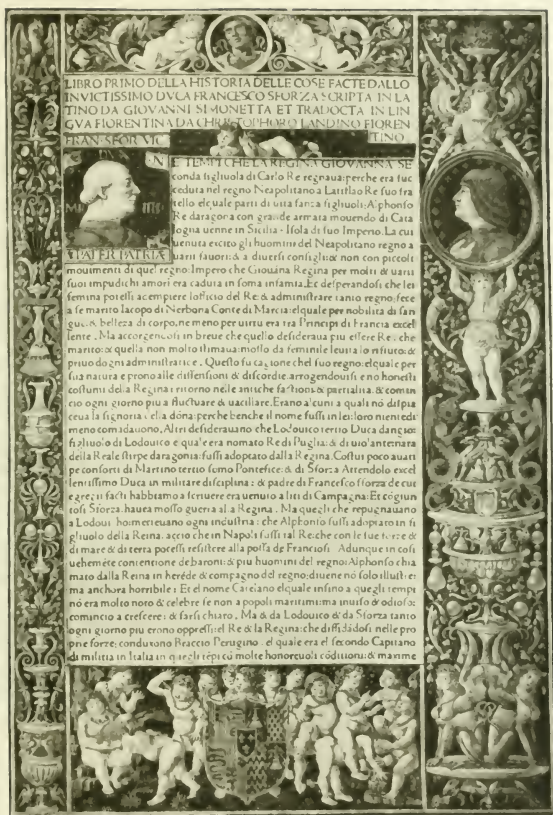 LIBRO PRIMO DELLA HISTORIA DELLE COSE FACTE DALLO
INVICTISSIMO DVCA FRANCESCO SFORZA SCRIPTA IN LA
TINO DA GIOVANNI SIMONETTA ET TRADOCTA IN LIN
GVA FIORENTINA DA CHRISTOPHORO LANDINO FIOREN
TINO
FRAN SFOR VIC
N
PATER PATRIÆ
E TEMPI CHE LA REGINA GIOVANNA SE
conda figliuola di Carlo Re regnaua: perche era suc
ceduta nel regno Neapolitano a Latislao Re suo fra
tello elquale parti di uita sanza figliuoli: Alphonso
Re daragona con grande armata mouendo di Cata
logna uenne in Sicilia Isola di suo Imperio. La cui
uenuta excito gli huomini del Neapolitano regno a
uarii fauori: & a diuersi consigli: & non con piccoli
mouimenti di quel regno Impero che Giouãna Regina per molti & uarii
suoi impudichi amori era caduta in soma infamia. Et desperandosi che lei
femina potessi acempiere lofficio del Re: & administrare tanto regno: fece
a se marito Iacopo di Nerbona Conte di Marcia: elquale per nobilita di san
gue: & bellezza di corpo, ne meno per uirtu era tra Principi di Francia excel
lente. Ma accorgendosi in breue che quello desideraua piu essere Re: che
marito: & quella non molto stimaua: mossa da feminile leuita lo rifiuto: &
priuo dogni administratione. Questo fu cagione chel suo regno: elquale per
sua natura e prono alle dissensioni & discordie: arrogendouisi e no honesti
costumi della Regina: ritorno nelle antiche factioni: & partialita: & comin
cio ogni giorno piu a fluctuare & uacillare. Erano alcuni a quali nõ dispia
ceua la signoria della dõna: perche benche il nome fussi in lei: loro nientedi
meno comãdauono. Altri desiderauano che Lodouico tertio Duca dangio:
figliuolo di Lodouico e qual'era nomato Re di Puglia: & di uiolante nata
della Reale stirpe daragonia: fussi adoptato dalla Regina. Costui poco auan
pe conforti di Martino tertio somo Pontefice: & di Sforza Attendolo excel
lentissimo Duca in militare disciplina: & padre di Francesco sforza de cui
egregii facti habbiamo a scriuere era uenuto a liti di Campagna: Et cõgiun
tosi Sforza. hauea mosso guerra alla Regina. Ma quegli che repugnauano
a Lodouico metteuano ogni industria: che Alphonso fussi adoptato in fi
gliuolo della Reina. accio che in Napoli fussi tal Re: che con le sue forze &
di mare & di terra potessi resistere alla possa de Franciosi. Adunque in cosi
uehemẽte contentione de baroni: & piu huomini del regno: Alphonso chia
mato dalla Reina in herede & compagno del regno: diuene nõ solo illustre:
ma anchora horribile: Et el nome Catelano elquale insino a quegli tempi
nõ era molto noto & celebre se non a popoli maritimi: ma inuiso & odioso:
comincio a crescere: & farsi chiaro. Ma & da Lodouico & da Sforza tanto
ogni giorno piu erono oppressi: el Re & la Regina: che diffidãdosi nelle pro
prie forze: conduxono Braccio Perugino. el quale era el secondo Capitano
di militia in Italia in quegli tẽpi cõ molte honoreuoli cõditioni: & maxime